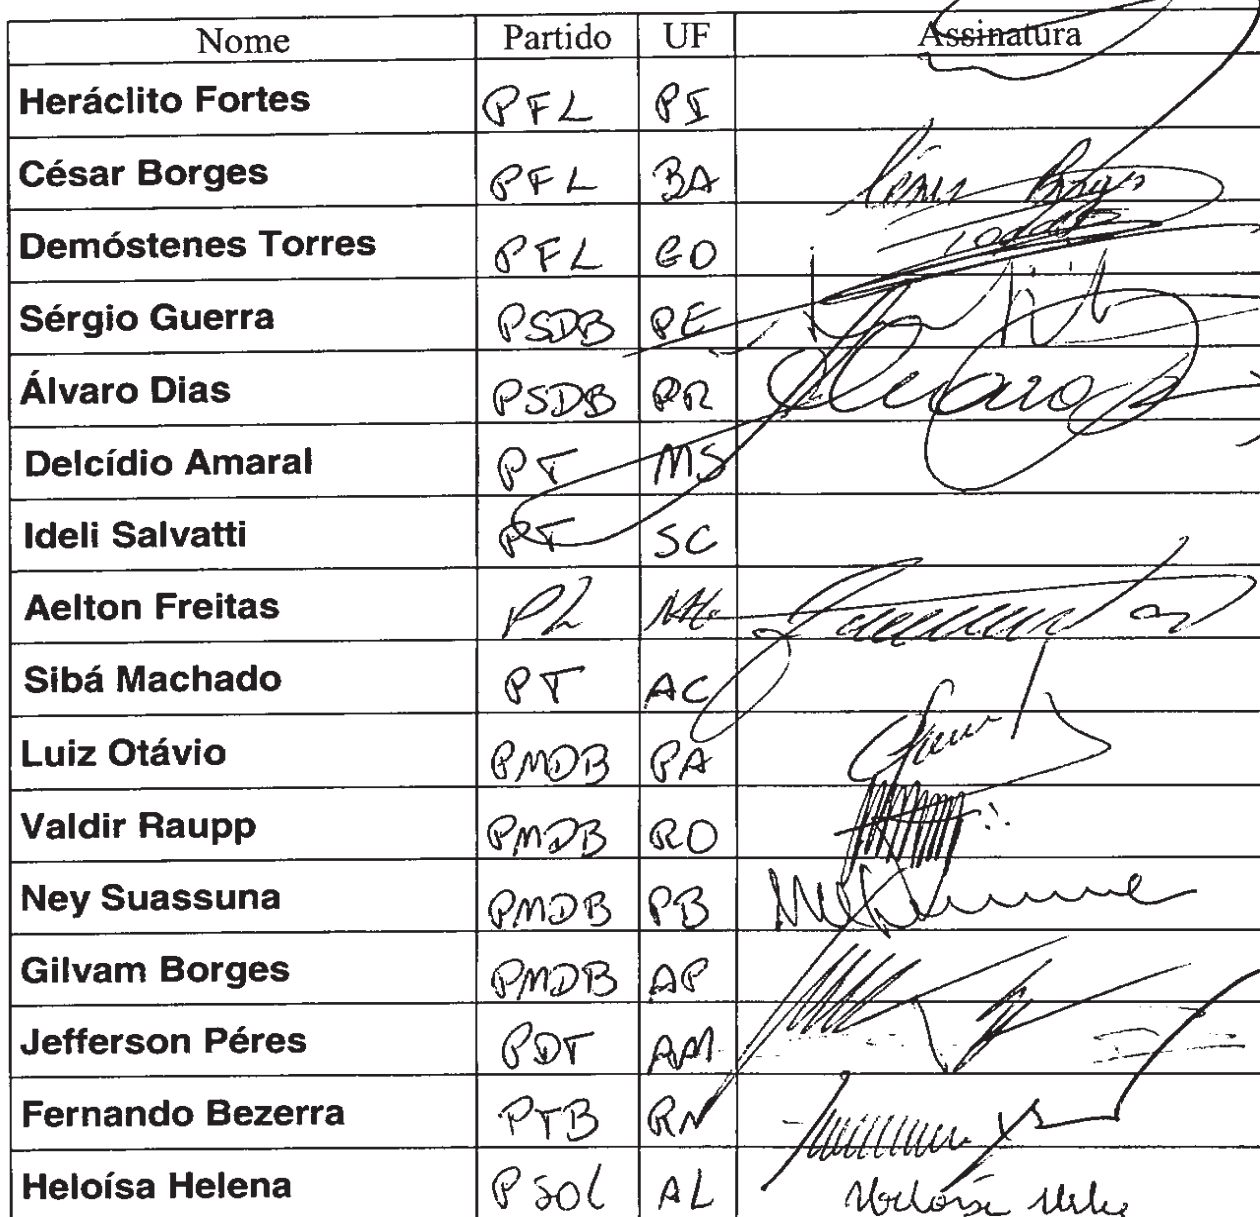 Nome Partido UF Assinatura
Heráclito Fortes PFL PI
César Borges PFL BA César Borges
Demóstenes Torres PFL GO
Sérgio Guerra PSDB PE
Álvaro Dias PSDB PR Alvaro Dias
Delcídio Amaral PT MS
Ideli Salvatti PT SC
Aelton Freitas PL MG
Sibá Machado PT AC
Luiz Otávio PMDB PA
Valdir Raupp PMDB RO
Ney Suassuna PMDB PB
Gilvam Borges PMDB AP
Jefferson Péres PDT AM
Fernando Bezerra PTB RN
Heloísa Helena PSOL AL Heloísa Helena